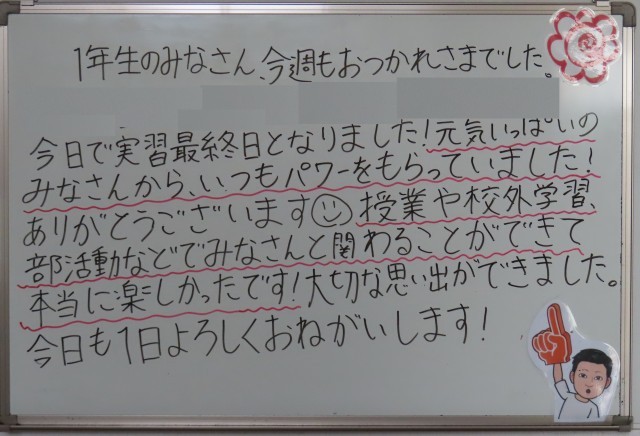 1年生のみなさん、今週もおつかれさまでした。
今日で実習最終日となりました!元気いっぱいの
みなさんから、いつもパワーをもらっていました!
ありがとうございます☺授業や校外学習、
部活動などでみなさんと関わることができて
本当に楽しかったです!大切な思い出ができました。
今日も1日よろしくおねがいします!